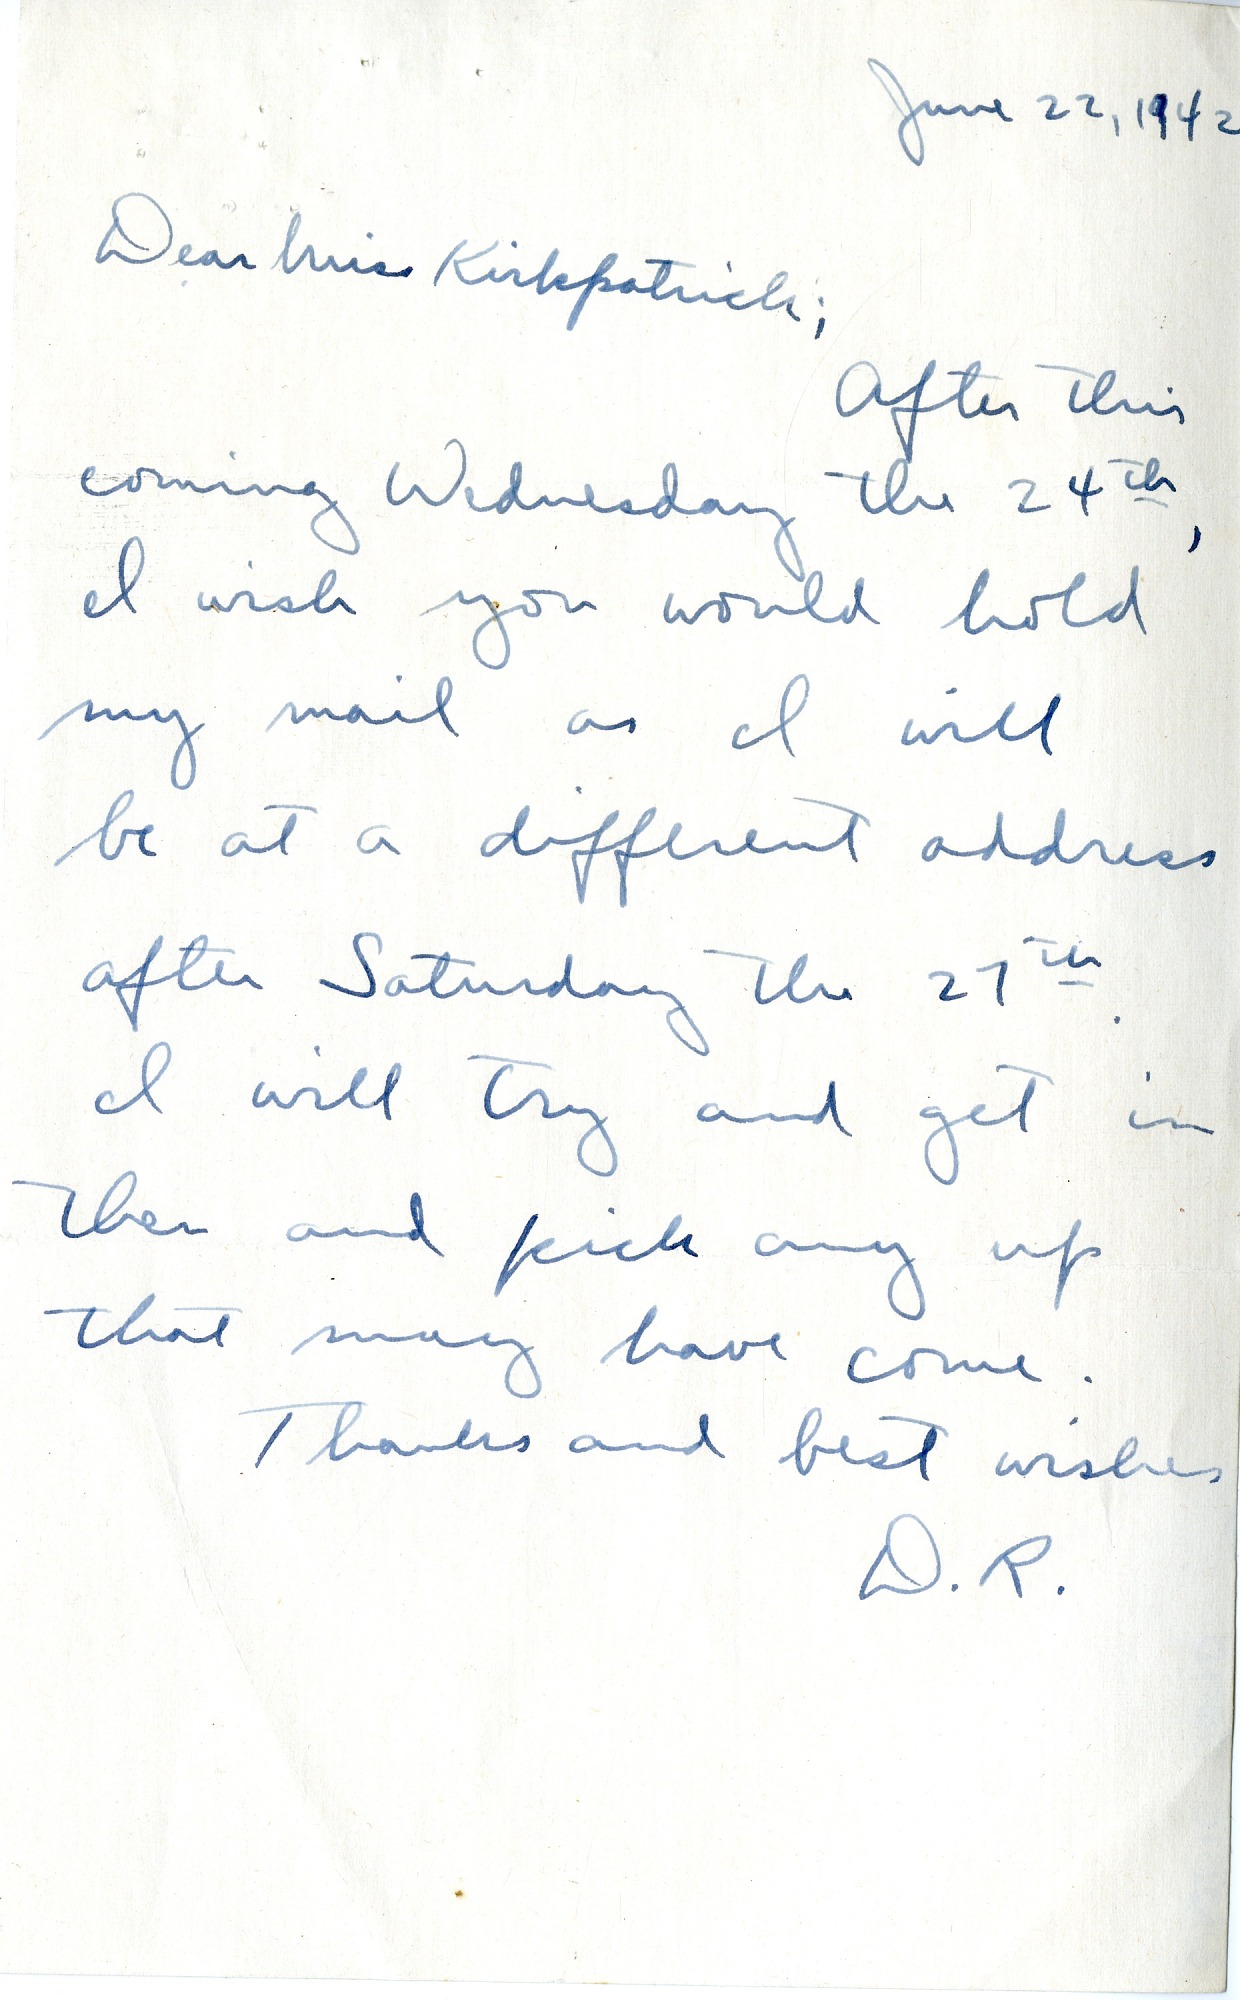 June 22, 1942
Dear Miss Kirkpatrick;
After this
coming Wednesday the 24th,
I wish you would hold
my mail as I will
be at a different address
after Saturday the 27th.
I will try and get in
then and pick any up
that may have come.
Thanks and best wishes
D. R.